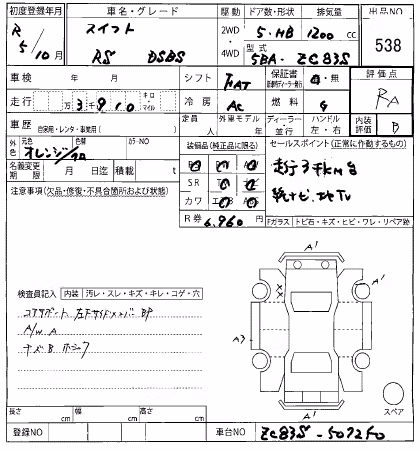 初度登録年月 車名・グレード 駆動 ドア数・形状 排気量 出品NO
R 5年 10月 スイフト RS DSBS 2WD・4WD 5・HB 1200 cc 538
型式 5BA- ZC83S
車検 年 月 シフト FAT 保証書 有・無 評価点
走行 万 3千910 キロ・マイル 冷房 AC 燃料 G RA
車歴 自家用・レンタ・事業用( ) 定員 人 外車モデル 年 ディーラー・並行 ハンドル 左・右 内装評価 B
外色 元色 オレンジ/クロ 色替 カラーNO
名義変更期限 月 日迄 積載 t
装備品(純正品に限る)
SR
カワ エ B A
R券 6,960 円
セールスポイント(正常に作動するもの)
走行3千km台
純ナビ・地TV
注意事項(欠品・修復・不具合箇所および状態)
Fガラス トビ石・キズ・ヒビ・ワレ・リペア跡
検査員記入 内装 汚レ・スレ・キズ・キレ・コゲ・穴
コアサポート 左Fサイドメンバー BP
A/W A
A1
A1
A3
A1
スペア
長さ cm 幅 cm 高さ cm
登録NO 車台NO ZC83S-5072